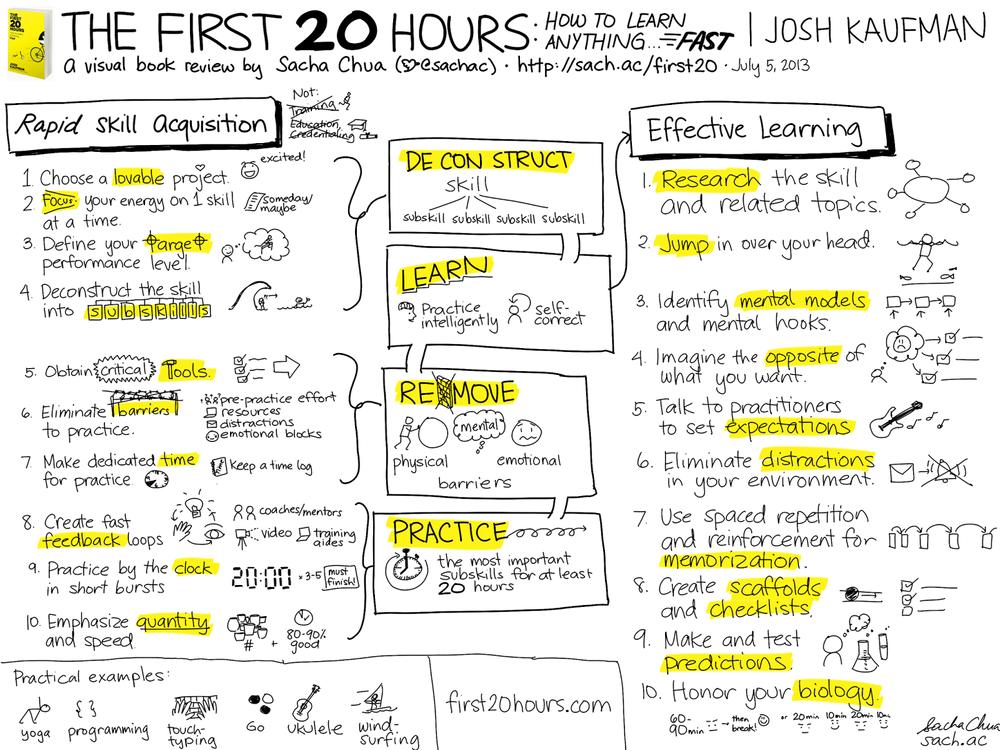 THE FIRST 20 HOURS: HOW TO LEARN ANYTHING... FAST | JOSH KAUFMAN
a visual book review by Sacha Chua (@sachac) · http://sach.ac/first20 · July 5, 2013
THE FIRST 20 HOURS
Rapid Skill Acquisition
Not:
Training
Education,
Credentialing
1. Choose a lovable project.
excited!
2 Focus your energy on 1 skill
at a time.
someday/
maybe
3. Define your target
performance level.
4. Deconstruct the skill
into subskills
5. Obtain critical Tools.
6. Eliminate barriers
to practice.
pre-practice effort
resources
distractions
emotional blocks
7. Make dedicated time
for practice
Keep a time log
8. Create fast
feedback loops
coaches/mentors
video
training
aides
9. Practice by the clock
in short bursts
20:00 x 3-5 must
finish!
10. Emphasize quantity
and speed.
# + 80-90%
good
DE CON STRUCT
skill
subskill subskill subskill subskill
LEARN
Practice
intelligently
self-
correct
REMOVE
mental
physical
emotional
barriers
PRACTICE
the most important
subskills for at least
20 hours
Effective Learning
1. Research the skill
and related topics.
2. Jump in over your head.
3. Identify mental models
and mental hooks.
4. Imagine the opposite of
what you want.
5. Talk to practitioners
to set expectations
6. Eliminate distractions
in your environment.
7. Use spaced repetition
and reinforcement for
memorization.
8. Create scaffolds
and checklists.
9. Make and test
predictions.
10. Honor your biology.
60-
90min
then
break!
or 20min 10min 20min 10m
Practical examples:
yoga
{ }
programming
touch-
typing
Go
ukulele
wind-
surfing
first20hours.com
Sacha Chua
sach.ac